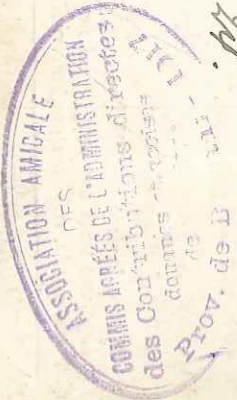 ASSOCIATION AMICALE
DES
COMMIS AGRÉÉS DE L'ADMINISTRATION
des Contributions directes
douanes et accises
de
Prov. de B